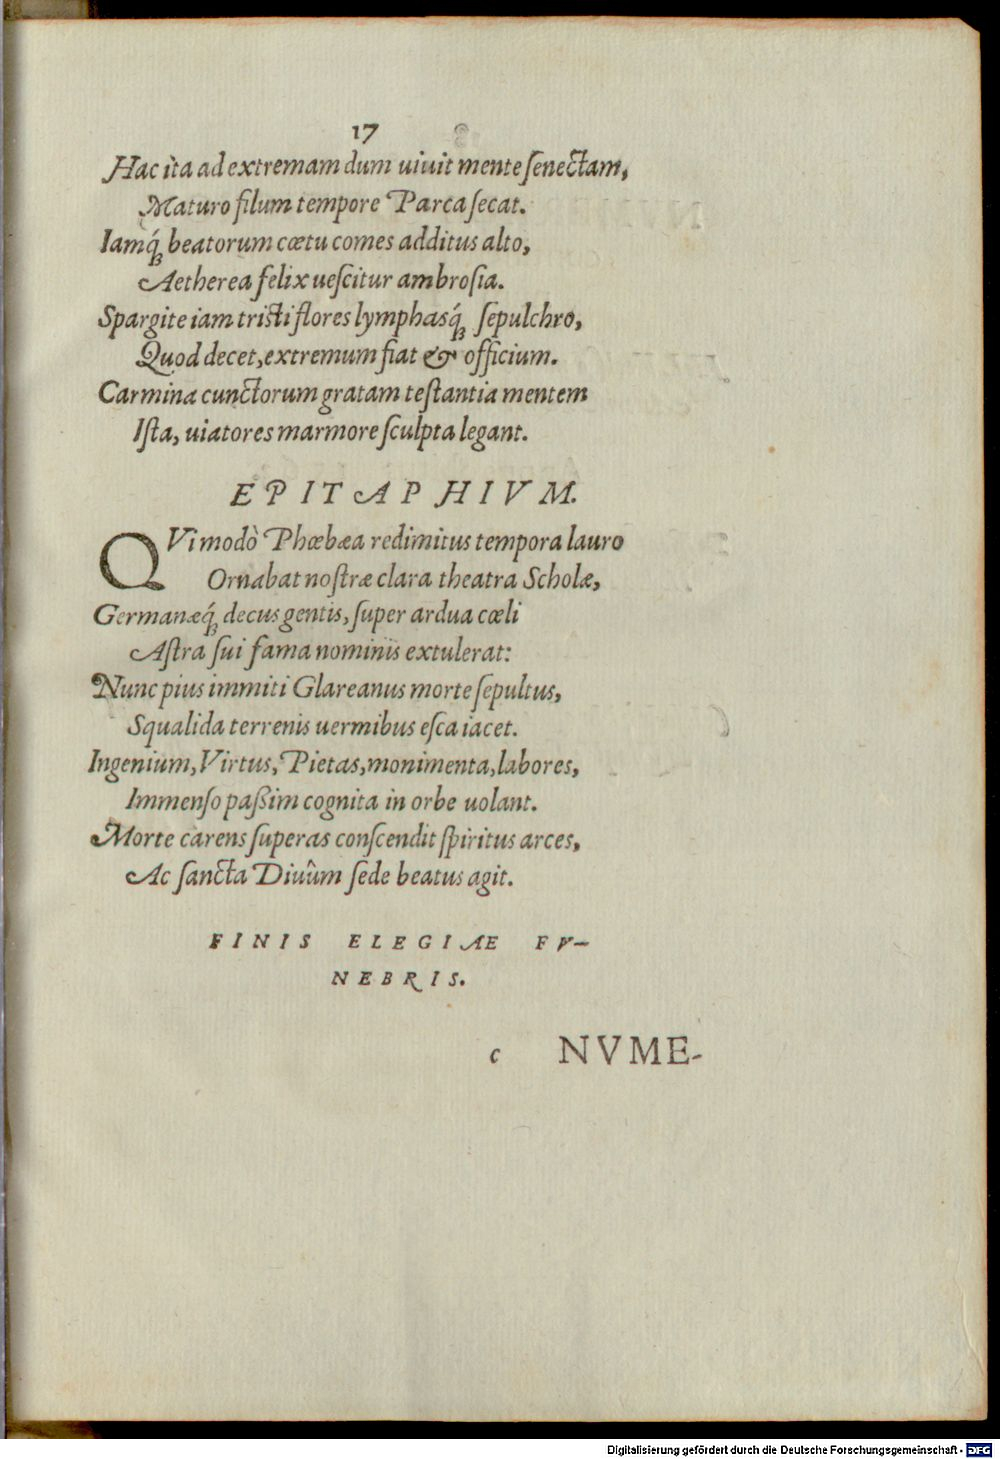 17
Hac ìta ad extremam dum uiuit mente ſenectam,
Maturo filum tempore Parca ſecat.
Iamq́; beatorum cœtu comes additus alto,
Aetherea felix ueſcitur ambroſia.
Spargite iam triſti flores lymphasq́; ſepulchro,
Quod decet, extremum fiat & officium.
Carmina cunctorum gratam teſtantia mentem
Iſta, uiatores marmore ſculpta legant.
EPITAPHIVM.
QVi modò Phœbæa redimitus tempora lauro
Ornabat noſtræ clara theatra Scholæ,
Germanæq́; decus gentis, ſuper ardua cœli
Aſtra ſui fama nominis extulerat:
Nunc pius immiti Glareanus morte ſepultus,
Squalida terrenis uermibus eſca iacet.
Ingenium, Virtus, Pietas, monimenta, labores,
Immenſo paßim cognita in orbe uolant.
Morte carens ſuperas conſcendit ſpiritus arces,
Ac ſancta Diuûm ſede beatus agit.
FINIS ELEGIAE FV-
NEBRIS.
c NVME-
Digitalisierung gefördert durch die Deutsche Forschungsgemeinschaft - DFG